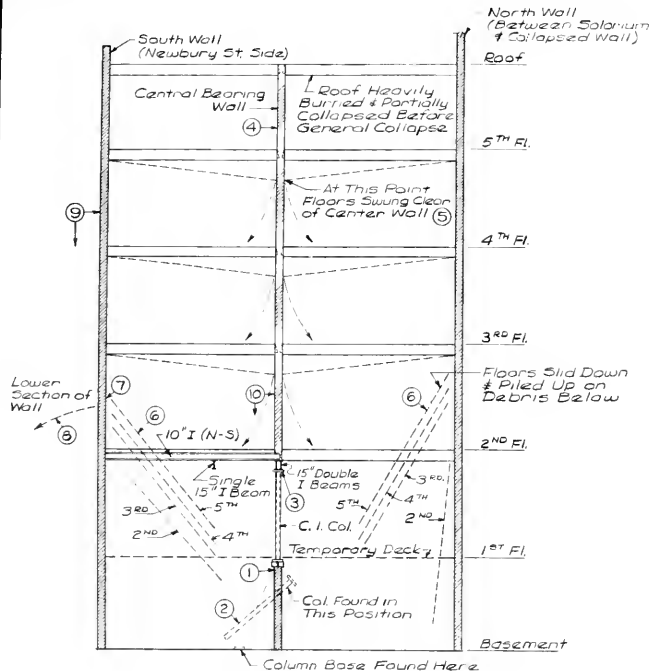 South Wall
(Newbury St. Side)
North Wall
(Between Solarium
& Collapsed Wall)
Roof
Central Bearing
Wall
4
Roof Heavily
Burried & Partially
Collapsed Before
General Collapse
5TH Fl.
9
At This Point
Floors Swung Clear
of Center Wall 5
4TH Fl.
3RD Fl.
Lower
Section of
Wall
7
8
6
10
6
Floors Slid Down
& Piled Up on
Debris Below
10" I (N-S)
2ND Fl.
Single
15" I Beam
15" Double
I Beams
3
3RD
2ND
5TH
4TH
C. I. Col.
5TH
3RD
4TH
2ND
Temporary Deck
1ST Fl.
1
2
Col. Found in
This Position
Basement
Column Base Found Here